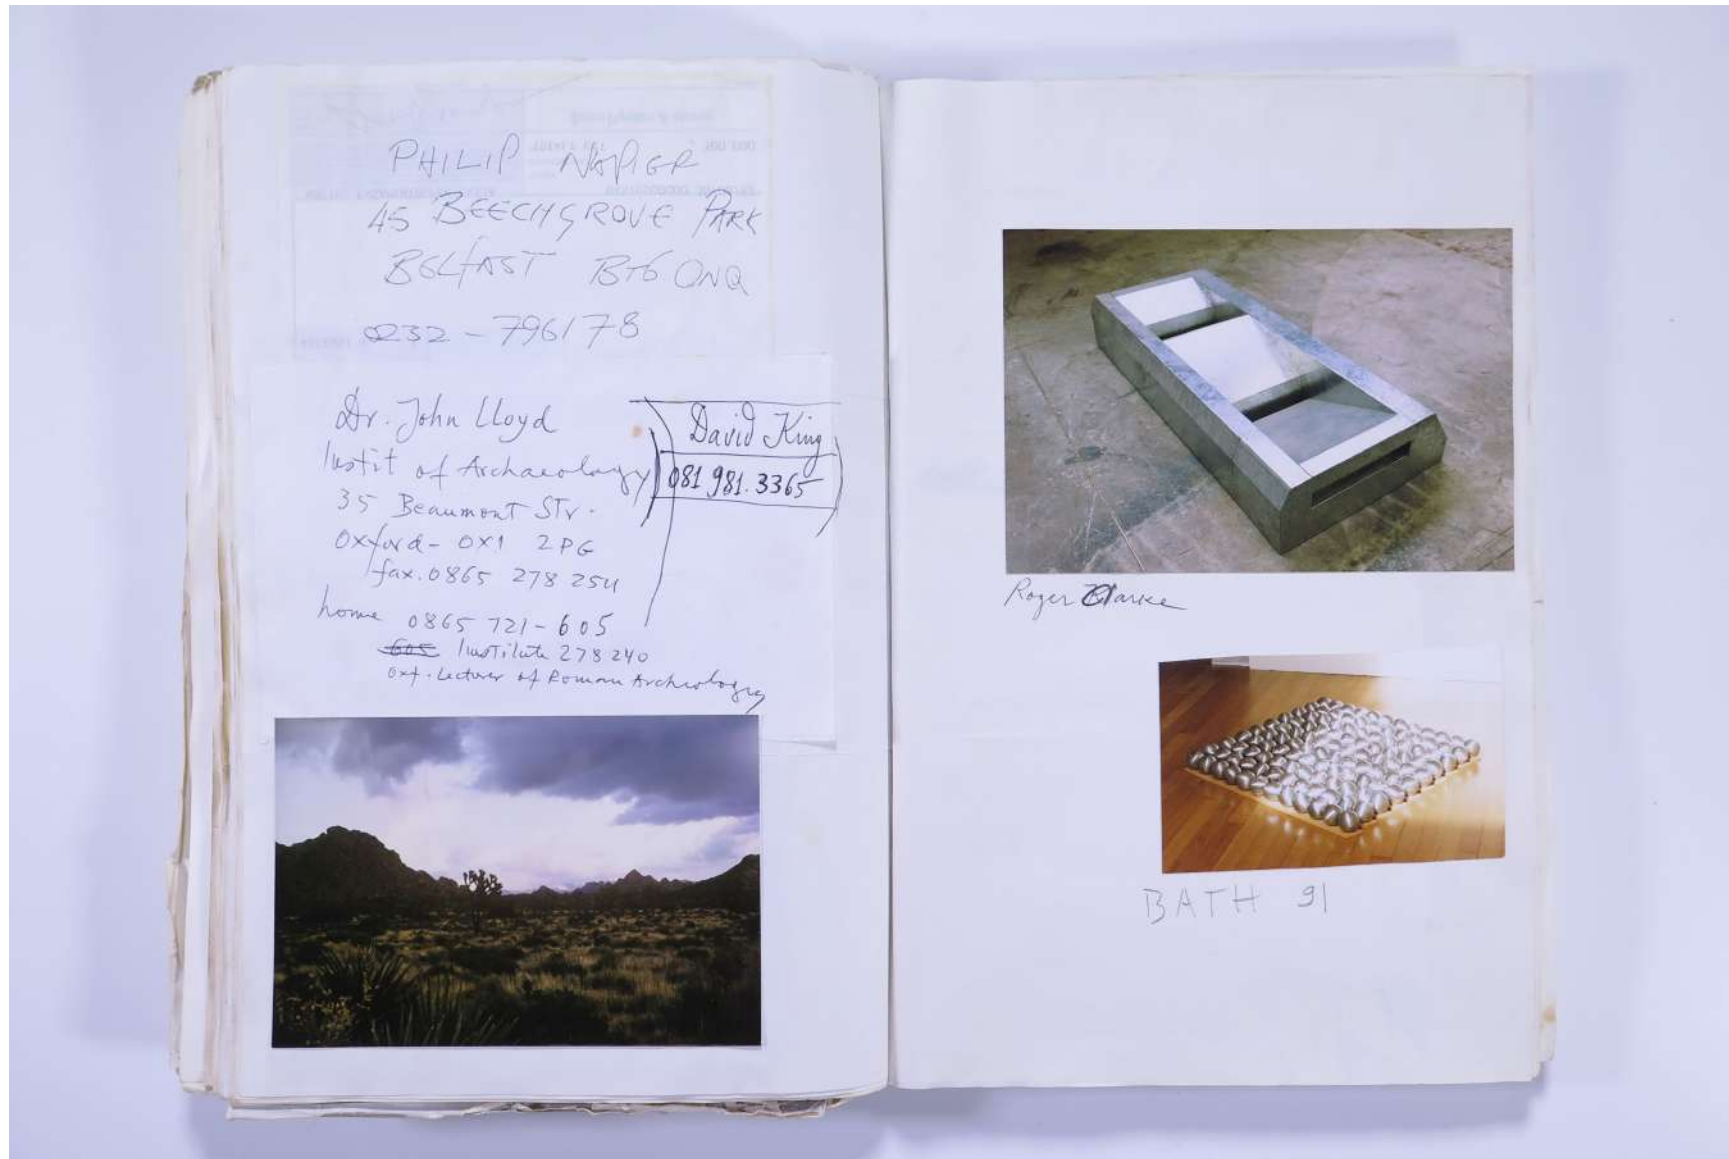 PHILIP NAPIER
45 BEECHGROVE PARK
BELFAST BT6 0NQ
0232 - 796178
Dr. John Lloyd
Instit of Archaeology
35 Beaumont Str.
Oxford - OX1 2PG
fax. 0865 278 254
home 0865 721-605
605 Institute 278 240
Oxf. Lecturer of Roman Archeology
David King
081 981.3365
Roger Clarke
BATH 91